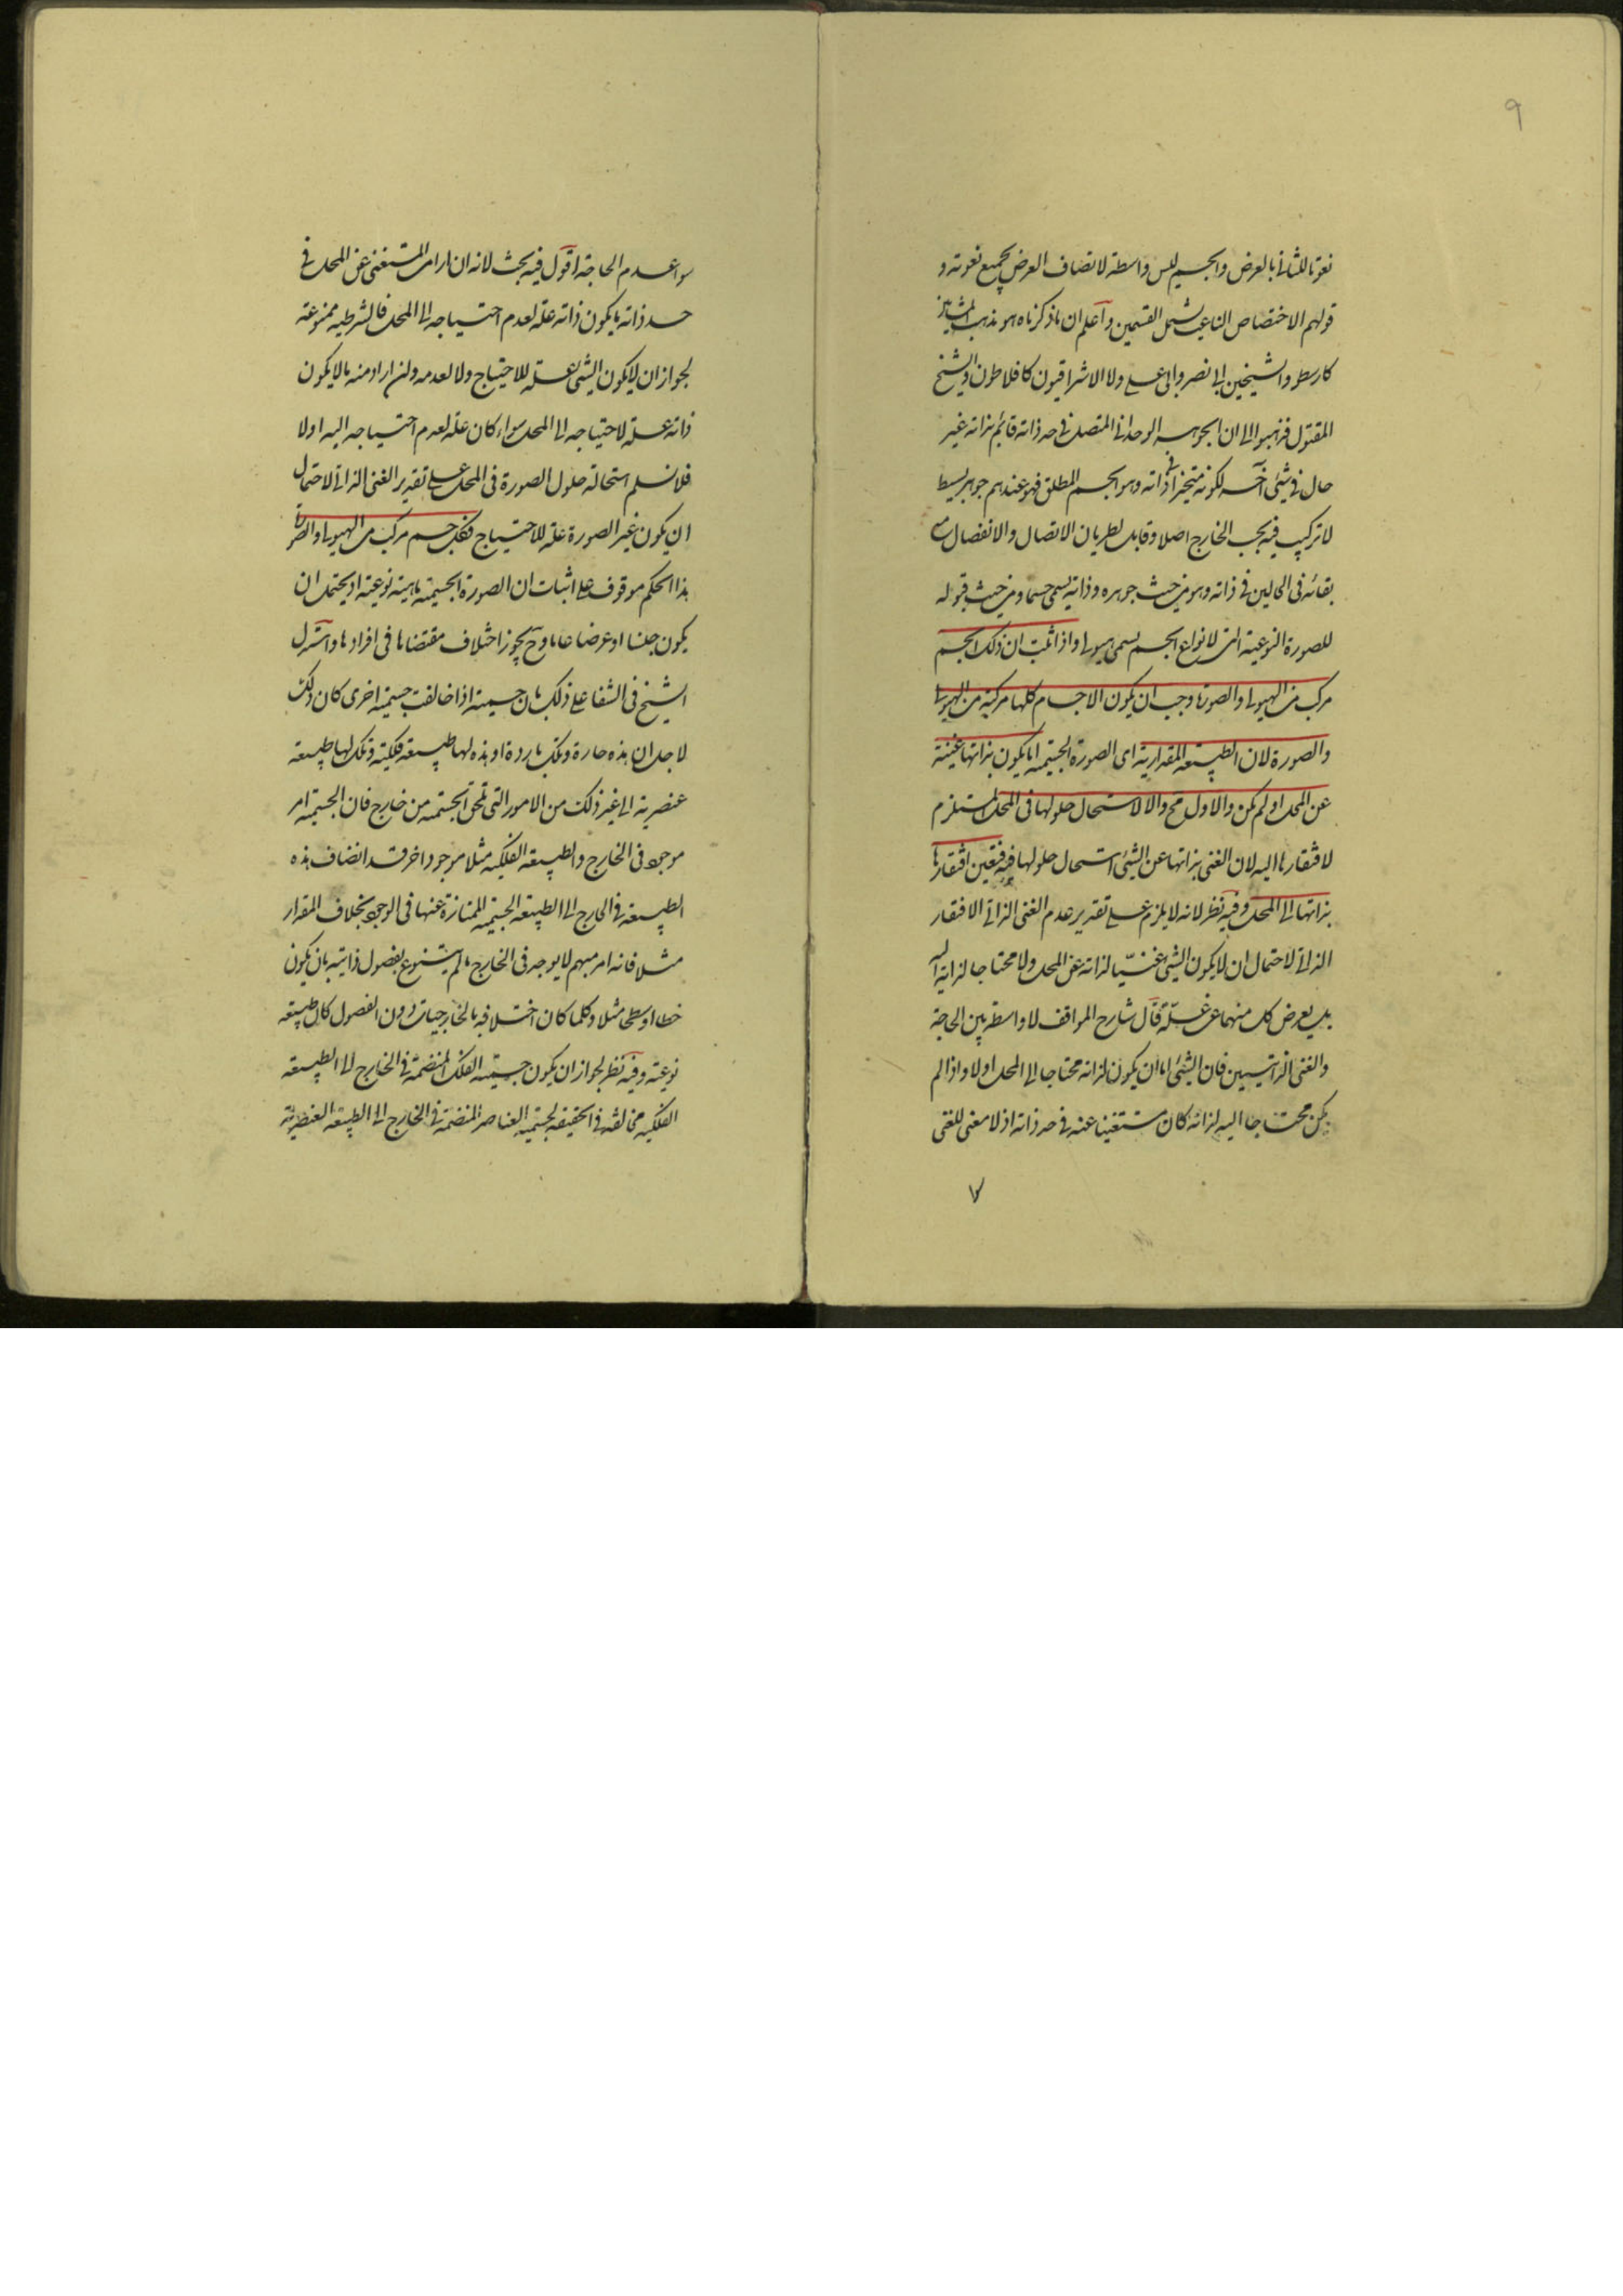 ٩
نعوتا للثانى بالعرض والجسم ليس واسطة لاتصاف العرض بجميع نعوته و
قولهم الاختصاص الناعت يشمل القسمين واعلم ان ما ذكرناه هو مذهب المشائين
كارسطو والشيخين ابى نصر وابى على ولا الاشراقيون كافلاطون والشيخ
المقتول فذهبوا الى ان الجوهر الوحدانى المتصل فى حد ذاته قائم بذاته غير
حال فى شئ آخر لكونه متحيزا فى ذاته وهو الجسم المطلق فهو عندهم جوهر بسيط
لا تركيب فيه بحسب الخارج اصلا وقابل لطريان الاتصال والانفصال مع
بقائه فى الحالين فى ذاته وهو من حيث جوهره وذاته يسمى جسما ومن حيث قبوله
للصورة النوعية التى لانواع الجسم يسمى هيولى واذا ثبت ان ذلك الجسم
مركب من الهيولى والصورة وجب ان يكون الاجسام كلها مركبة من الهيولى
والصورة لان الطبيعة المقدارية اى الصورة الجسمية اما يكون بذاتها غنية
عن المحل او لم يكن والاول مح والا لاستحال حلولها فى المحل المستلزم
لافتقارها اليه لان الغنى بذاتها عن الشئ استحال حلولها فيه فتعين افتقارها
بذاتها الى المحل وفيه نظر لانه لا يلزم على تقدير عدم الغنى الذاتى الافتقار
الذاتى لاحتمال ان لا يكون الشئ غنيّا لذاته عن المحل ولا محتاجا لذاته اليه
بل يعرض كل منهما عن علّة قال شارح المواقف لا واسطة بين الحاجة
والغنى الذاتيين فان الشئ اما ان يكون لذاته محتاجا الى المحل اولا واذا لم
يكن محتاجا اليه لذاته كان مستغنيا عنه فى حد ذاته اذ لا معنى للغنى
سوا عدم الحاجة اقول فيه بحث لانه ان اراد من المستغنى عن المحل فى
حد ذاته ما يكون ذاته علة لعدم احتياجه الى المحل فالشرطية ممنوعة
لجواز ان لا يكون الشئ علة للاحتياج ولا لعدمه وان اراد منه ما لا يكون
ذاته علة لاحتياجه الى المحل سواء كان علة لعدم احتياجه اليه اولا
فلا نسلم استحالة حلول الصورة فى المحل على تقدير الغنى الذاتى لاحتمال
ان يكون غير الصورة علة للاحتياج فكل جسم مركب من الهيولى والصورة
هذا الحكم موقوف على اثبات ان الصورة الجسمية ماهية نوعية او يحتمل ان
يكون جنسا او عرضا عاما وح يجوز اختلاف مقتضاها فى افرادها واستدل
الشيخ فى الشفا على ذلك بان جسمية اذا خالفت جسمية اخرى كان ذلك
لاجل ان هذه حارة وتلك باردة او هذه لها طبيعة فلكية وتلك لها طبيعة
عنصرية الى غير ذلك من الامور التى تلحق الجسمية من خارج فان الجسمية امر
موجود فى الخارج والطبيعة الفلكية مثلا موجود اخر قد انضاف هذه
الطبيعة فى الخارج الى الطبيعة الجسمية الممتازة عنها فى الوجود بخلاف المقدار
مثلا فانه امر مبهم لا يوجد فى الخارج ما لم يتنوع بفصول ذاتية بان يكون
خطا او سطحا مثلا وكلما كان اختلافه بالخارجيات دون الفصول كان طبيعة
نوعية وفيه نظر لجواز ان يكون جسمية الفلك المنضمة فى الخارج الى الطبيعة
الفلكية مخالفة فى الحقيقة لجسمية العناصر المنضمة فى الخارج الى الطبيعة العنصرية